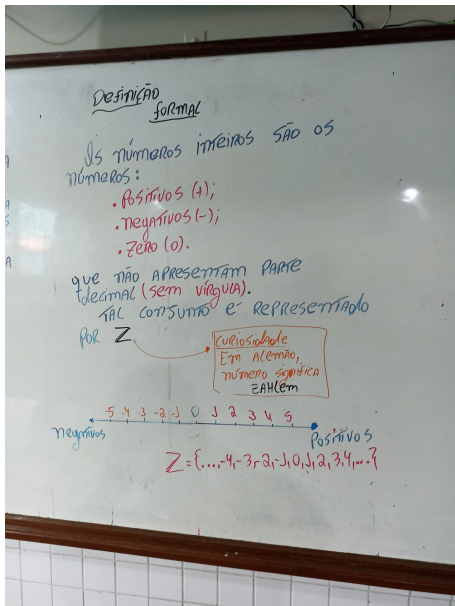 Definição
formal
Os números inteiros são os
números:
. Positivos (+);
. negativos (-);
. Zero (0).
que não apresentam parte
decimal (sem vírgula).
Tal conjunto é representado
por Z
Curiosidade
Em Alemão,
número significa
ZAHlem
-5 -4 3 -2 -1 0 1 2 3 4 5
negativos
Positivos
Z = {..., -4, -3, -2, -1, 0, 1, 2, 3, 4, ...}